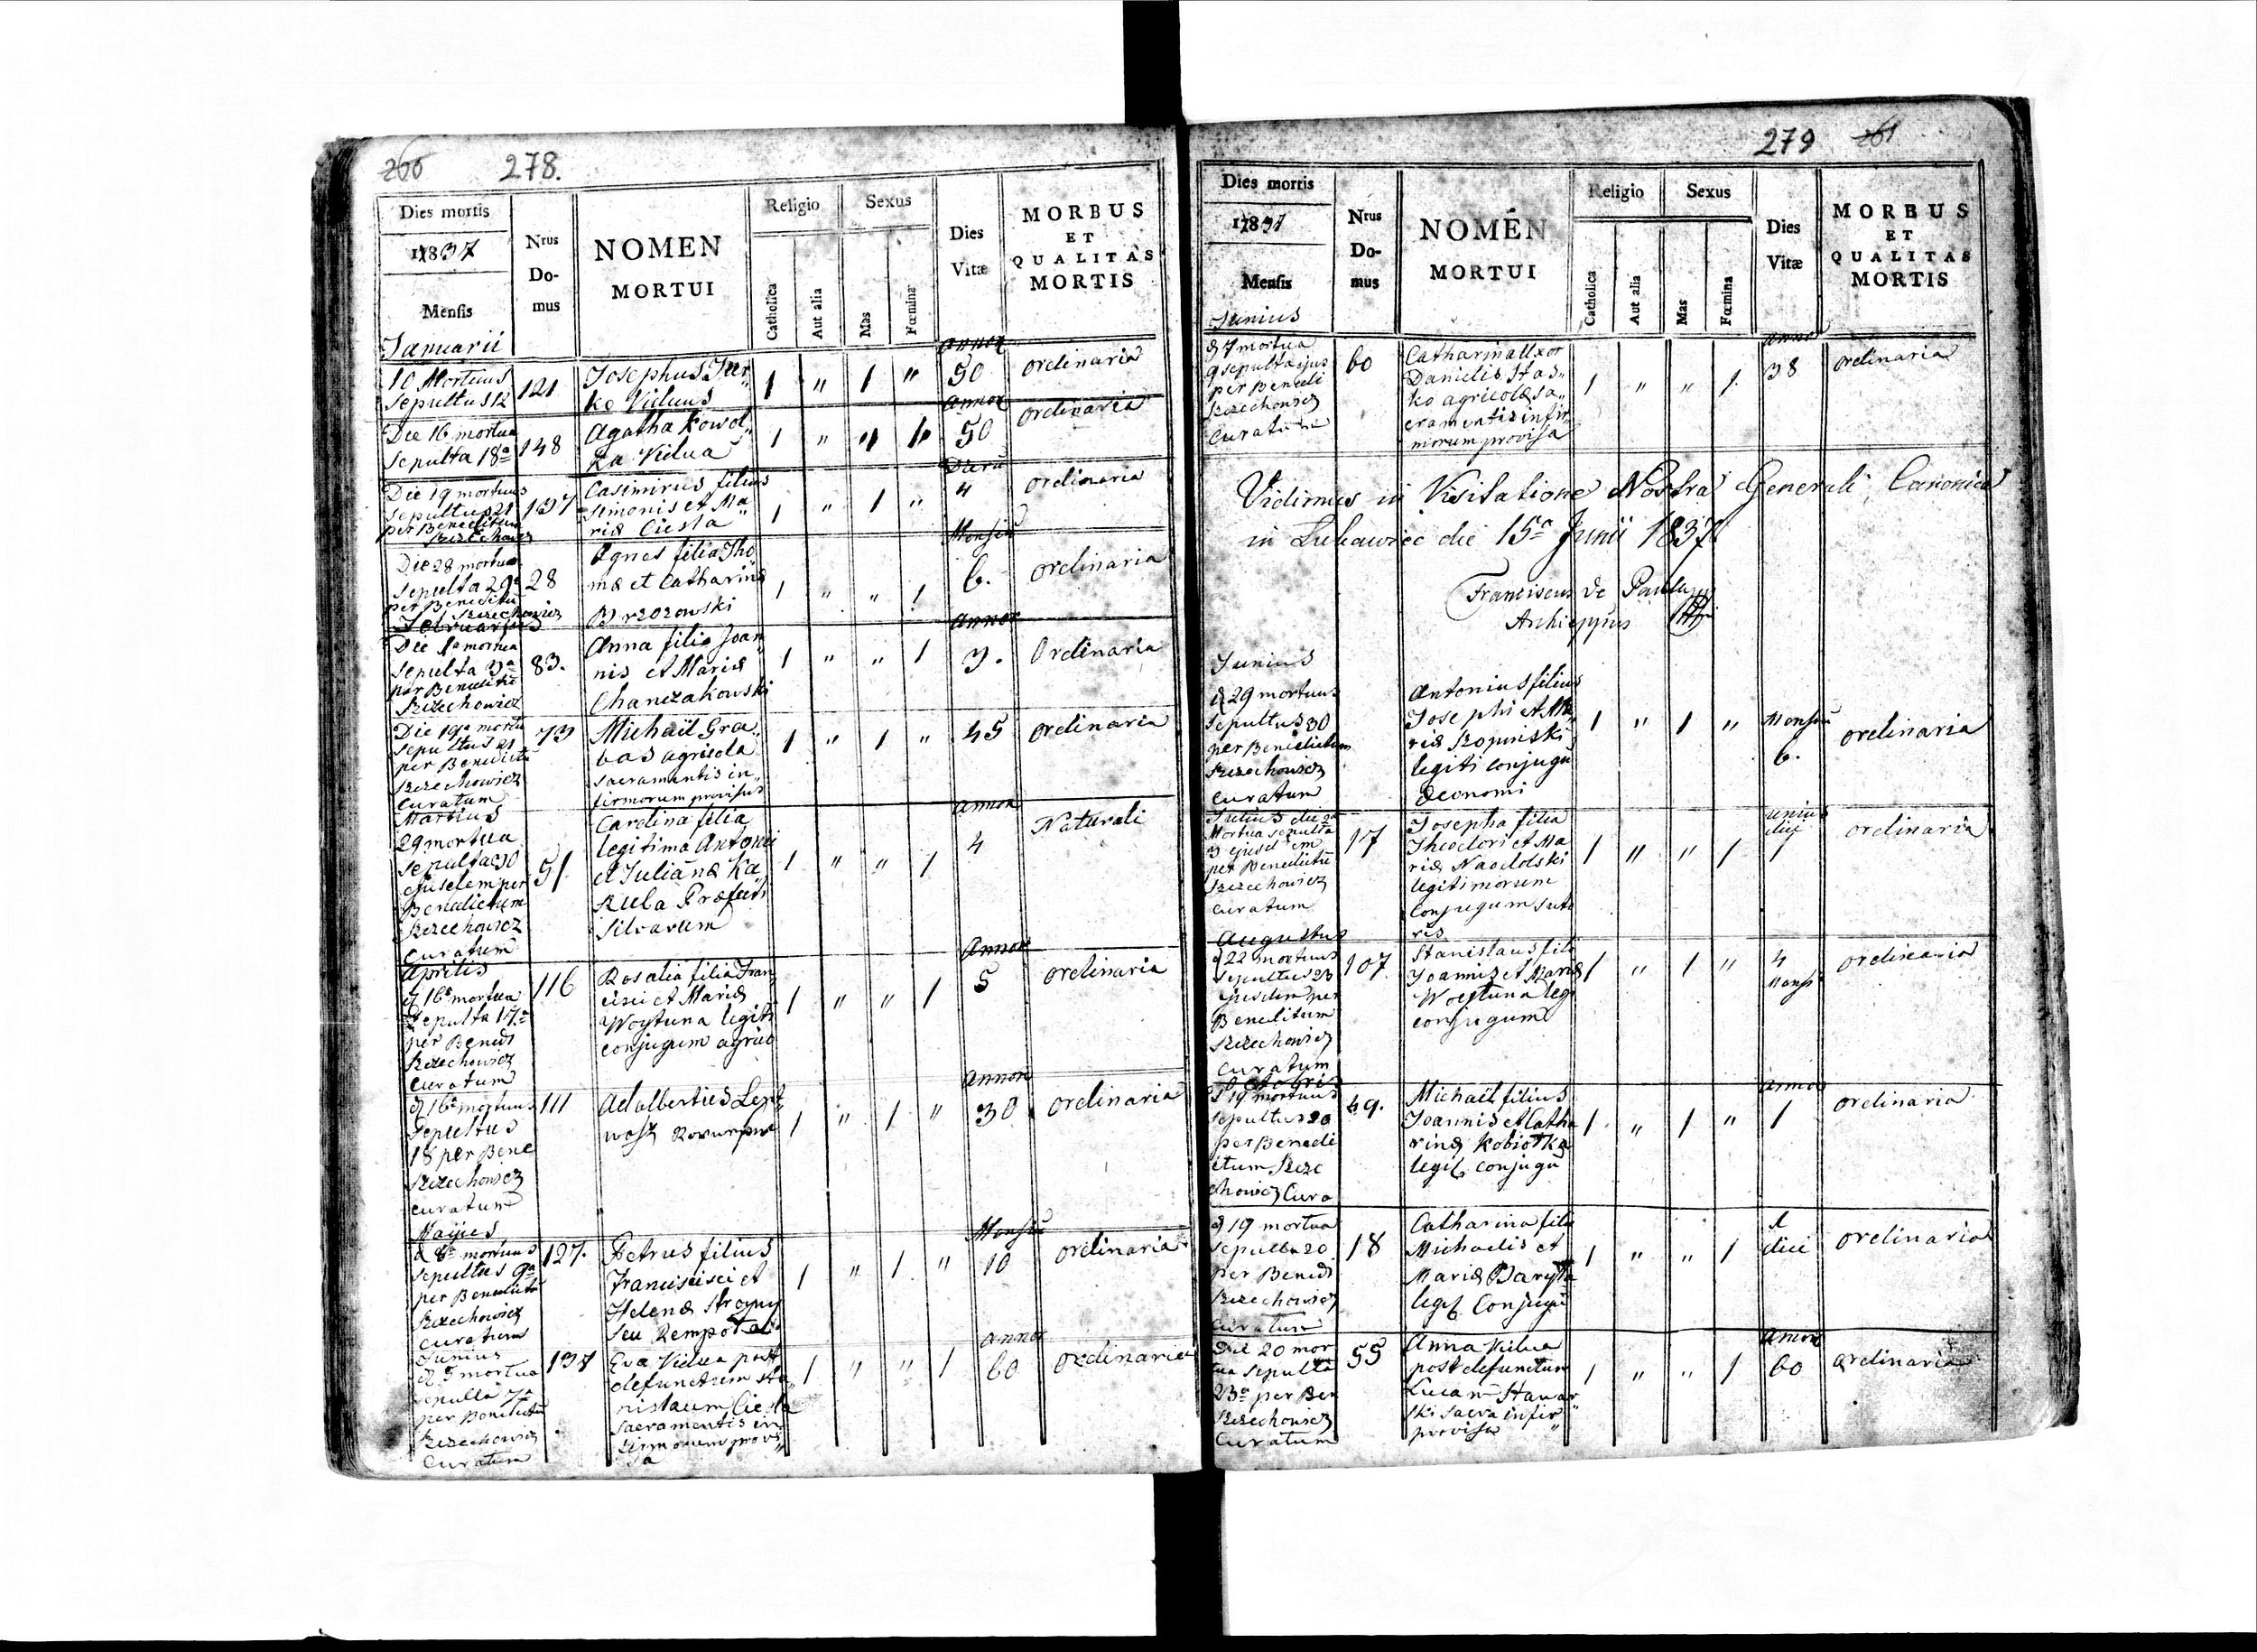 266 278.
Dies mortis
1837
Mensis
Januarii
Nrus
Do-
mus
NOMEN
MORTUI
Religio
Catholica
Aut alia
Sexus
Mas
Fœmina
Dies
Vitæ
MORBUS
ET
QUALITAS
MORTIS
10 Mortuus
Sepultus 12
121
Josephus
ko Viduus
1 " 1 "
annor
50
ordinaria
Die 16 mortua
Sepulta 18a
148
Agatha Kowol„
ka Vidua
1 " " 1
annor
50
ordinaria
Die 19 mortuus
sepultus 21
per Benedictum
Szezechowicz
137
Casimirus filius
Simonis et Ma
riæ Ciesla
1 " 1 "
Dieru
4
ordinaria
Die 28 mortua
sepulta 29a
per Benedictu
Szezechowicz
28
Agnes filia Tho
mæ et Catharinæ
Brzozowski
1 " " 1
Mensiu
6.
ordinaria
Februarius
Die 1a mortua
sepulta 3a
per Benedictu
Szezechowicz
83.
Anna filia Joan
nis et Mariæ
Chanczakowski
1 " " 1
annor
3.
Ordinaria
Die 19a mortu
sepultus 21
per Benedictu
Szezechowicz
Curatum
73
Michaël Gra„
bas agricola
sacramentis in„
firmorum provisus
1 " 1 "
45
ordinaria
Martius
29 mortua
sepulta 30
ejusdem per
Benedictum
Szezechowicz
Curatum
51.
Carolina filia
legitima Antonii
et Julianæ Ka
kula Præfecti
Silvarum
1 " " 1
annor
4
Naturali
Aprilis
d 16a mortua
Sepulta 17a
per Bened
Szezechowicz
Curatum
116
Rosalia filia Fran
cisci et Mariæ
Woytuna legiti
conjugum agrico
1 " " 1
Annor
5
ordinaria
d 16a mortuus
Sepultus
18 per Bene
Szezechowicz
curatum
111
Adalbertus
1 " 1 "
annor
30
ordinaria
Majus
d 8a mortuus
sepultus 9a
per Benedictu
Szezechowicz
Curatum
127.
Petrus filius
Francisci et
Helenæ Strojny
seu Rempota
1 " 1 "
Mensiu
10
ordinaria
Junius
d 5 mortua
sepulta 7a
per Benedictu
Szezechowicz
Curatum
137
Eva Vidua post
defunctum Sta„
nislaum Ciesla
sacramentis in
firmorum provi„
sa
1 " " 1
annor
60
ordinaria
279 261
Dies mortis
1837
Mensis
Junius
Nrus
Do-
mus
NOMEN
MORTUI
Religio
Catholica
Aut alia
Sexus
Mas
Fœmina
Dies
Vitæ
MORBUS
ET
QUALITAS
MORTIS
d 7 mortua
9 sepulta ejus
per Benedi
Szezechowicz
Curatum
60
Catharina Uxor
Danielis Stas„
ko agricolæ sa„
cramentis infir„
morum provisa
1 " " 1.
anno
38
ordinaria
Vidimus in Visitatione Nostra Generali Canonica
in Lukawiec die 15a Junii 1837
Franciscus de Paula
Archieppus
Junius
d 29 mortuus
sepultus 30
per Benedictum
Szezechowicz
Curatum
Antonius filius
Josephi et Ma„
riæ Szopinski
legiti conjugu
Œconomi
1 " 1 "
Mensiu
6.
ordinaria
Julius die 2a
Mortua sepulta
3 ejusdem
per Benedictu
Szezechowicz
Curatum
17
Josepha filia
Theodori et Ma
riæ Nadolski
legitimorum
conjugum suto
ris
1 " " 1
unius
diei
1
ordinaria
Augustus
d 22 mortuus
sepultus 23
ejusdem per
Benedictum
Szezechowicz
Curatum
107
Stanislaus fili
Joannis et Mariæ
Woytuna leg
conjugum
1 " 1 "
4
Mensi
ordinaria
Octobris
d 19 mortuus
sepultus 20
per Benedi
ctum Szeze
chowicz Cura
49.
Michaël filius
Joannis et Catha
rinæ Kobiołka
legit conjugu
1. " 1 "
annor
1
ordinaria
d 19 mortua
sepulta 20
per Bened
Szezechowicz
Curatum
18
Catharina filia
Michaelis et
Mariæ Baryła
legit Conjugu
1 " " 1
1
diei
ordinaria
Die 20 mor
tua sepulta
23a per Ben
Szezechowicz
Curatum
55
Anna Vidua
post defunctum
Lucam Stawar
ski sacra infir„
provisa
1 " " 1
annor
60
ordinaria